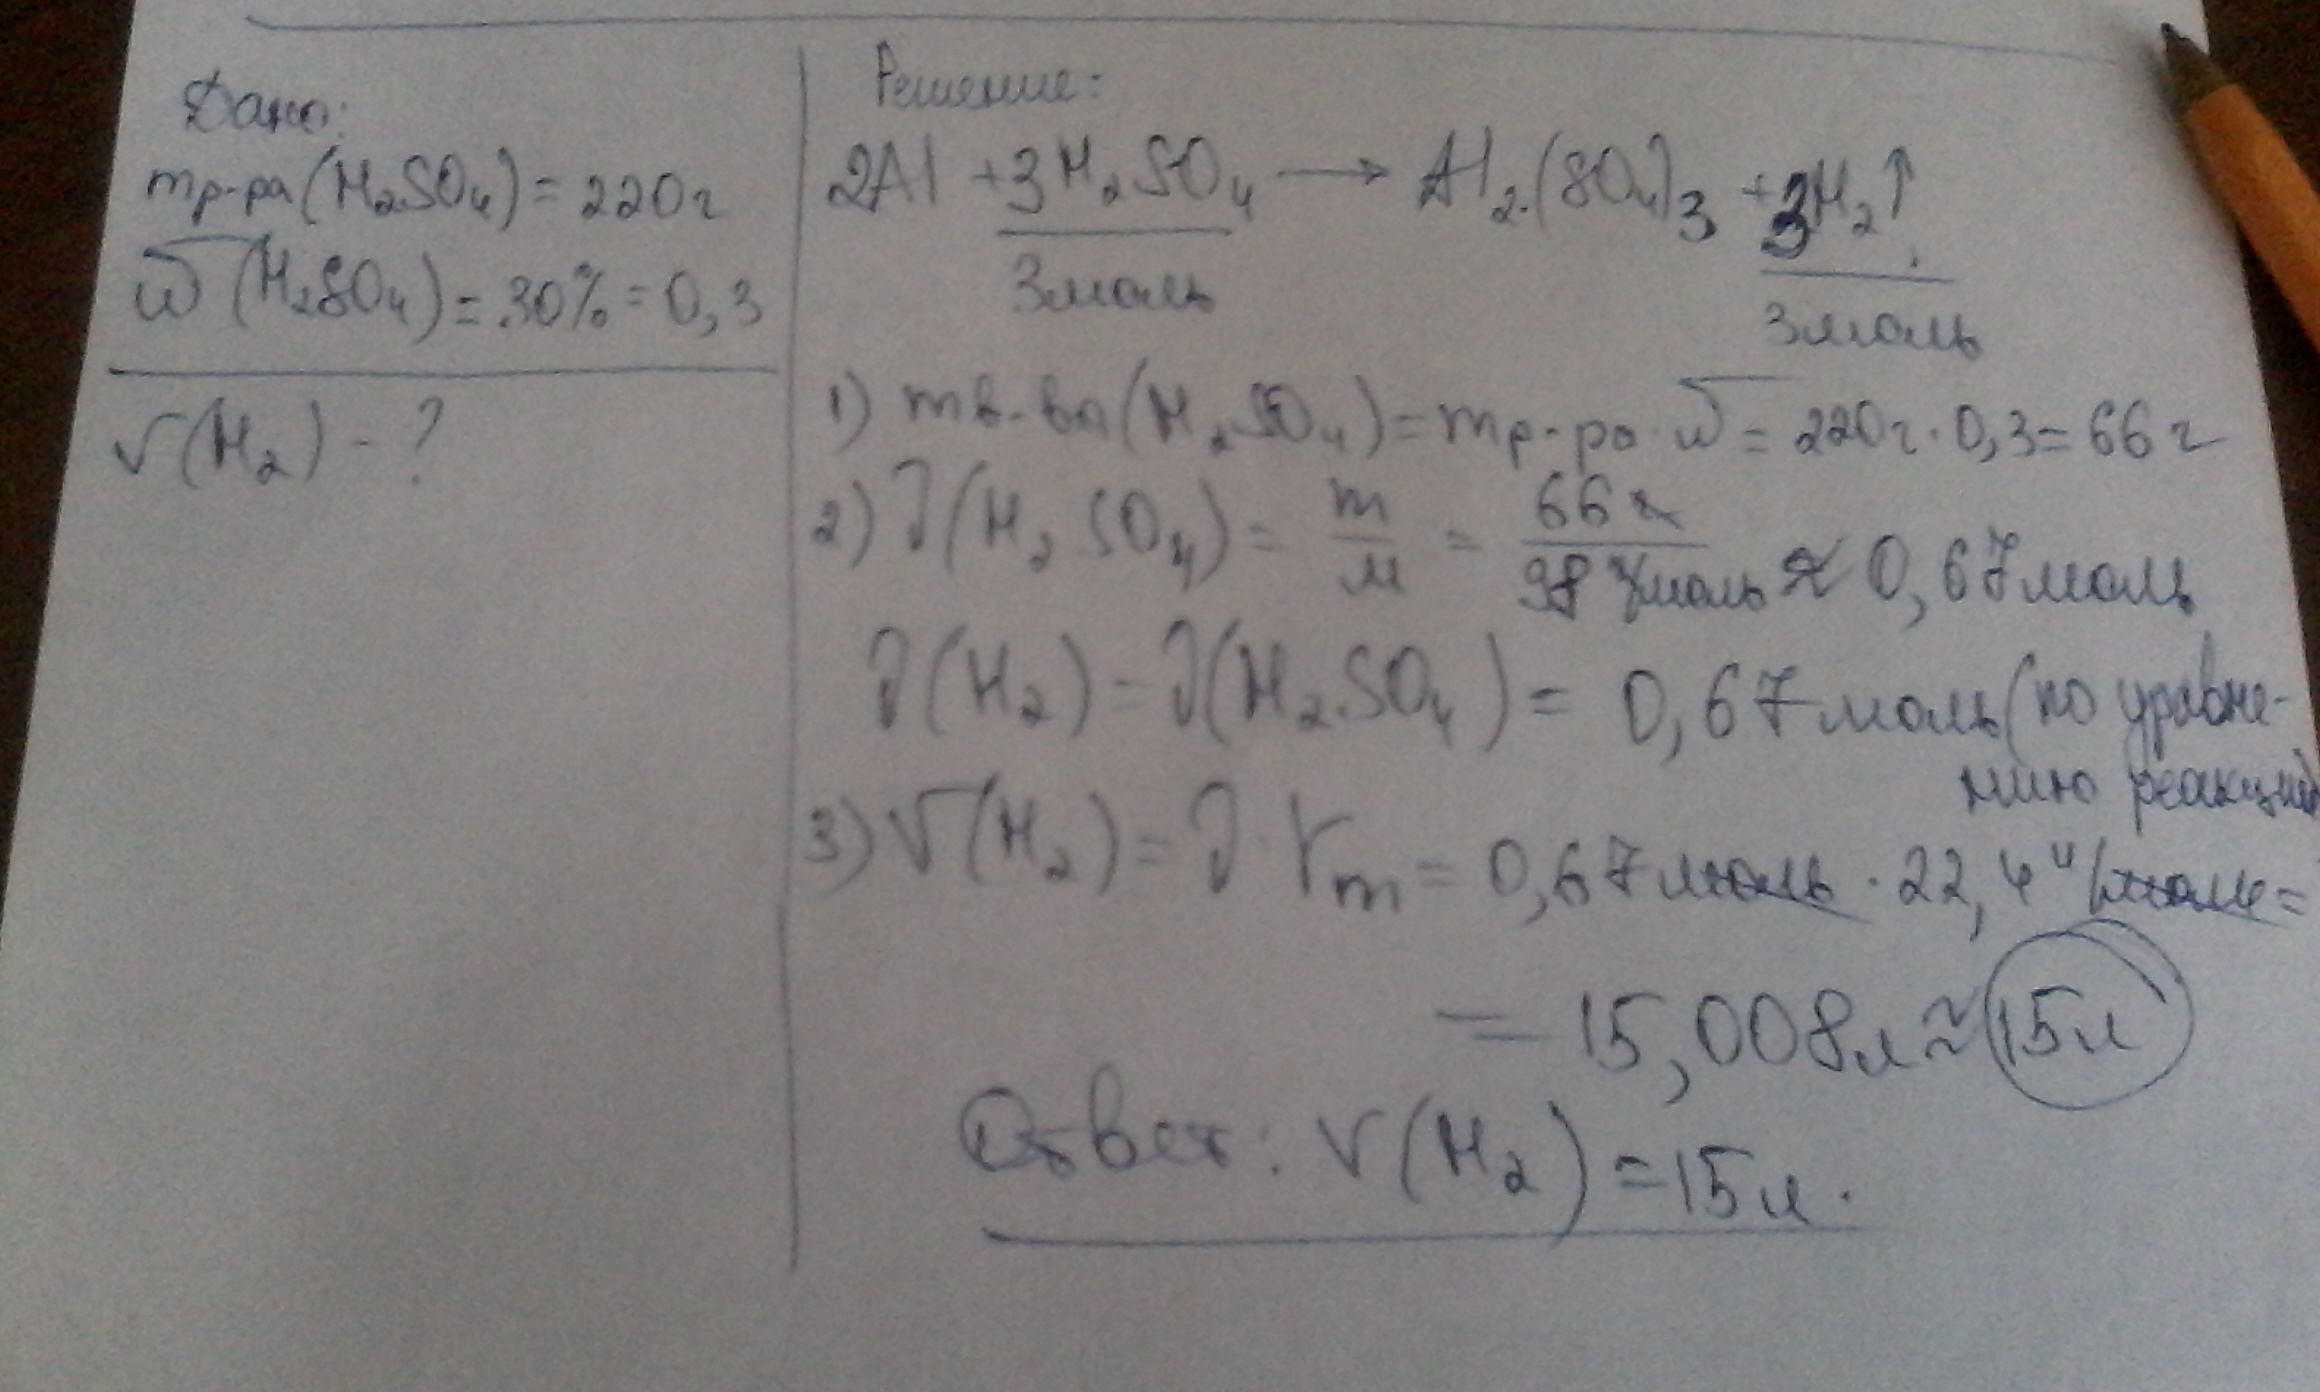 Дано:
mр-ра(H₂SO₄) = 220г
ω(H₂SO₄) = 30% = 0,3
V(H₂) - ?
Решение:
2Al + 3H₂SO₄ → Al₂(SO₄)₃ + 3H₂↑
3моль 3моль
1) mв-ва(H₂SO₄) = mр-ра · ω = 220г · 0,3 = 66г
2) ν(H₂SO₄) = m/M = 66г/98г/моль ≈ 0,67моль
ν(H₂) = ν(H₂SO₄) = 0,67моль (по уравне-
нию реакции)
3) V(H₂) = ν · Vm = 0,67моль · 22,4л/моль =
= 15,008л ≈ 15л
Ответ: V(H₂) = 15л.